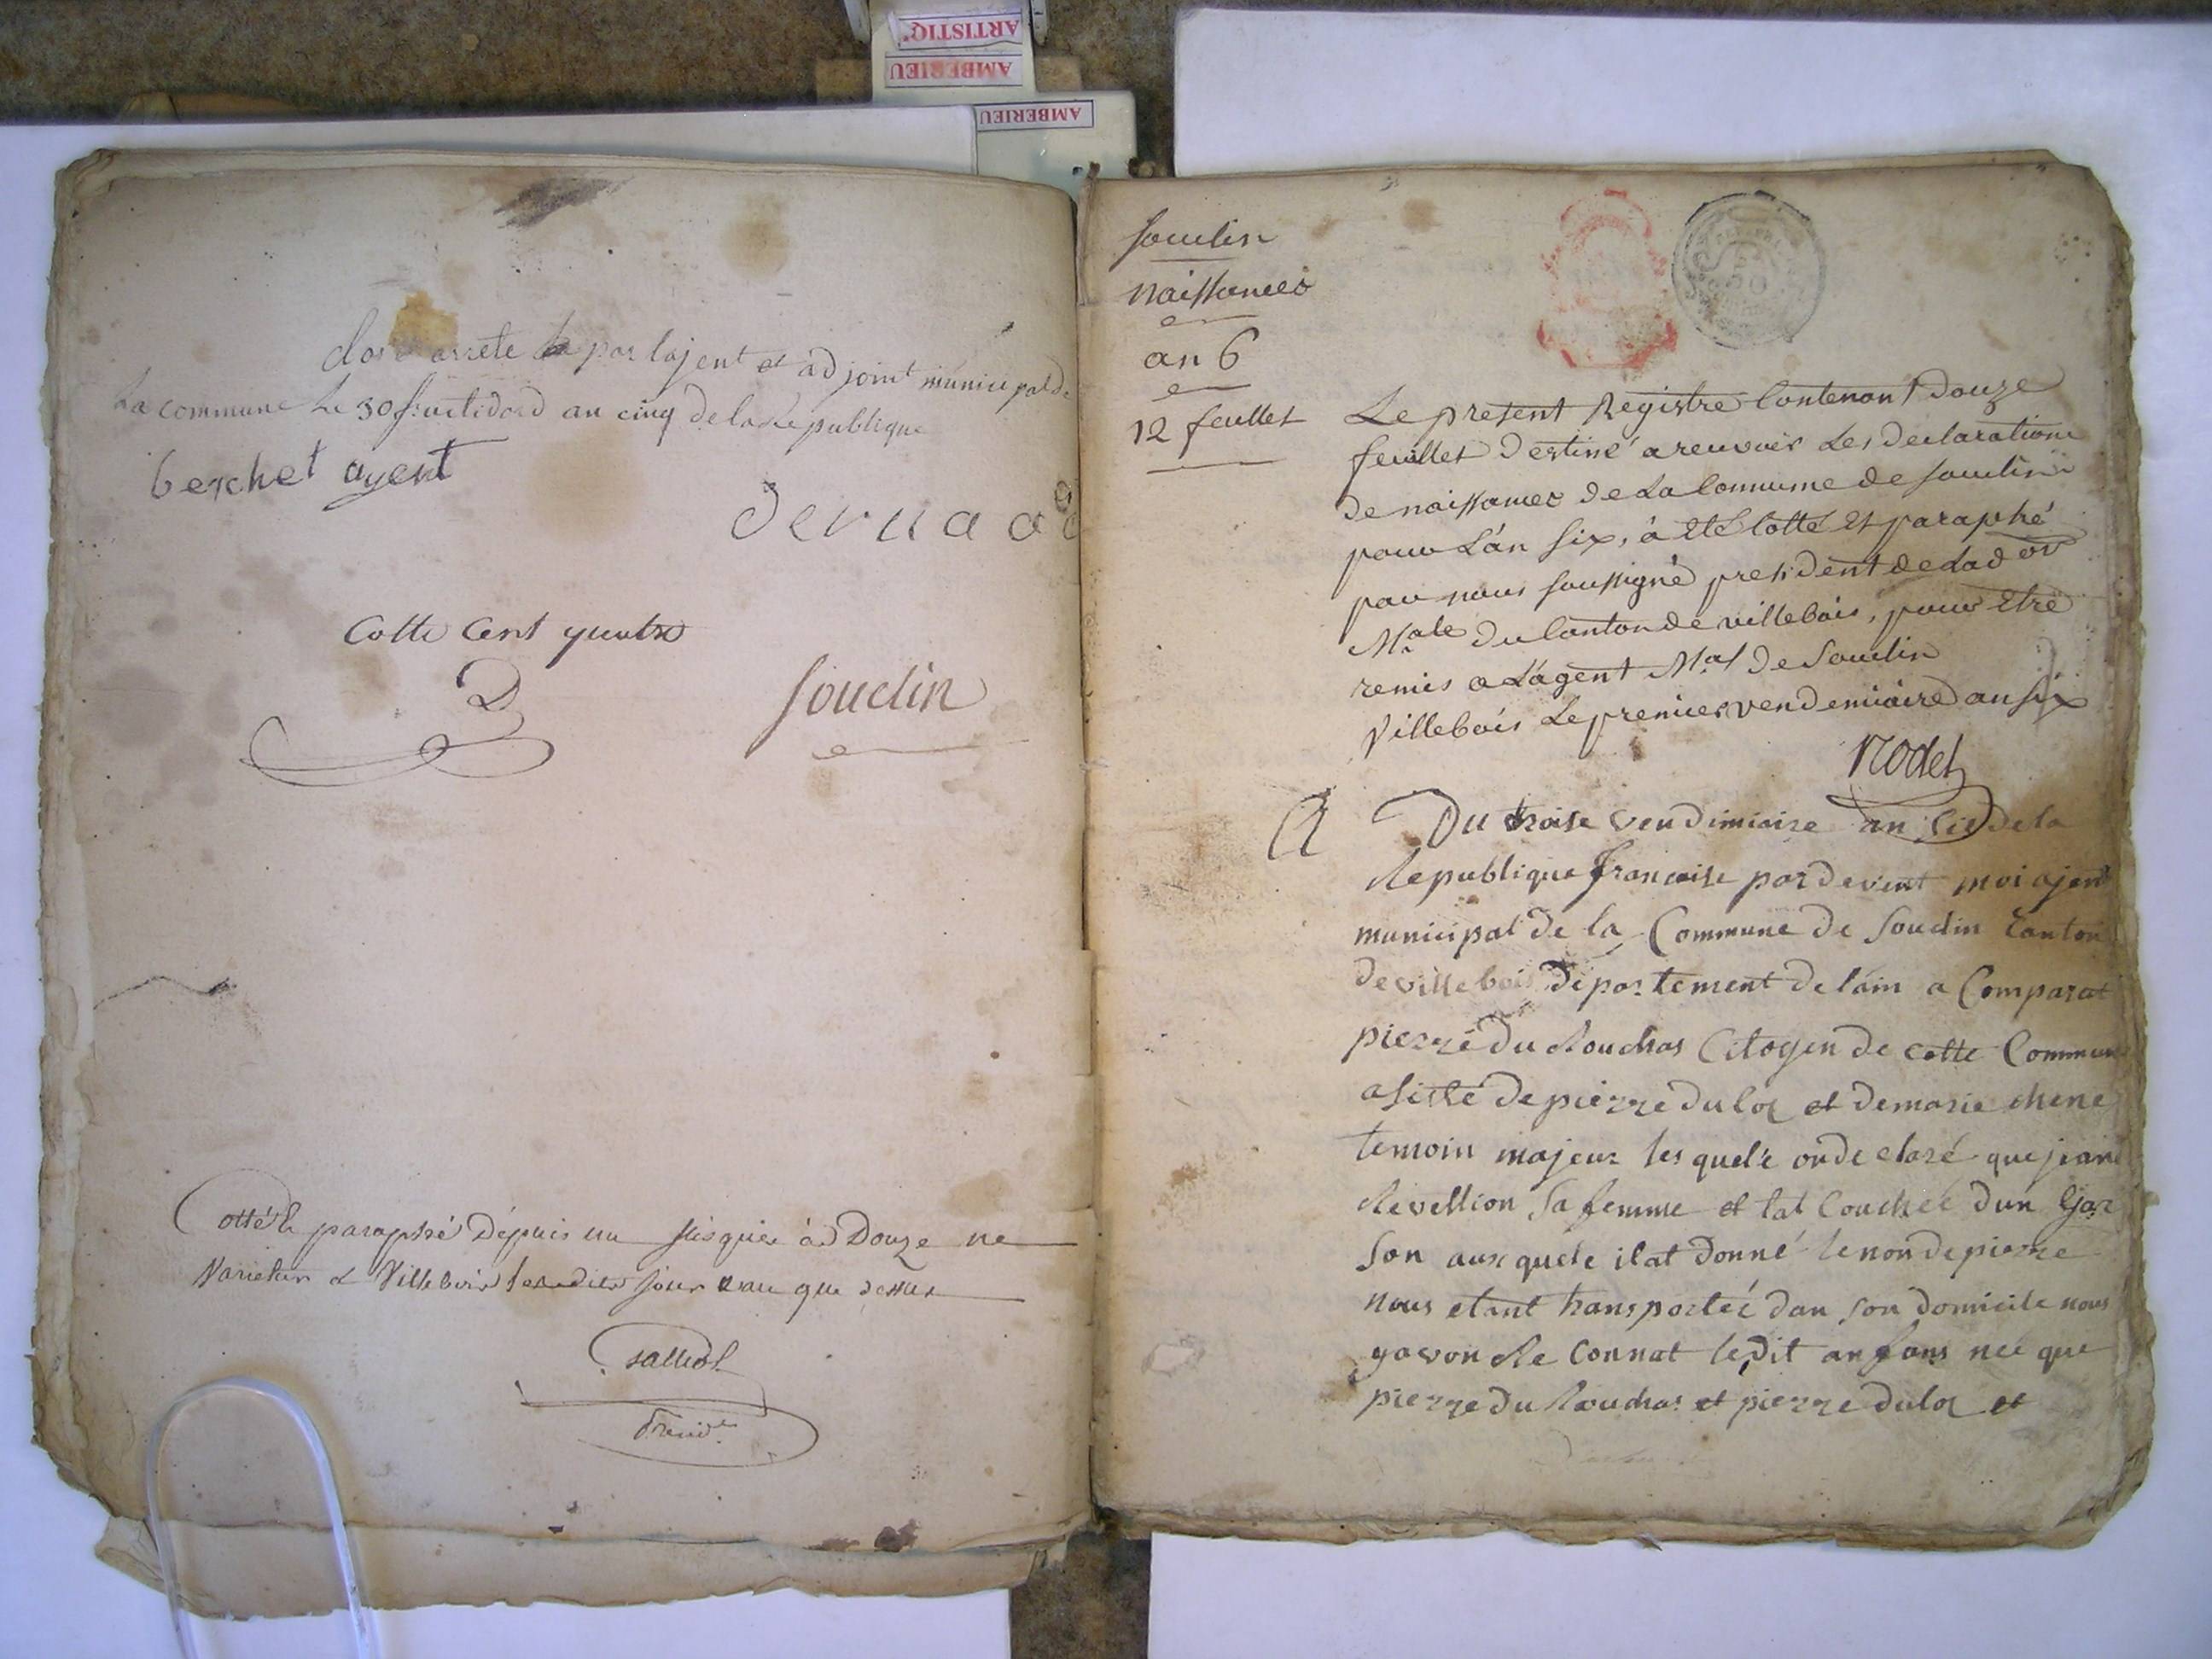 ARTISTIQ.
AMBERIEU
AMBERIEU
clos arrete par lajent et ad joint municipal de
La commune Le 30 fructidord an cinq de la Republique
berchet agent
Cotte Cent quatre
Soudin
Cotté & paraphé Depuis un jusques à Douze ne
Varietur a Villebois les jour & an que dessus
Presid.
Soudin
Naissances
an 6
12 feuillet
Le present Registre Contenant Douze
feuillet Destiné a recevoir Les Declarations
de naissances de La Commune de Soudin
pour L'an Six, à été Cotté et paraphé
par nous soussigné president de L'ad on
M.ale du Canton de villebois, pour être
remis a L'agent M.al de Soudin
Villebois Le premier vendemiaire an Six
Rodet
Du troise vendimiaire an sis de la
Republique francaise par devent moi ajent
municipal de la Commune de Soudin Canton
de villebois Departement de lain a Comparat
pierre Du Rouchas Citoyen de cette Commune
asisté de pierre Duloz et de marie chene
temoin majeur les quele onde claré que jeanne
Revellion Sa femme et tat Couchée dun Gar
Son aux quele il at donné le non de pierre
Nous etant transportée dan son domicile nous
yavon Re Connat le dit anfans née que
pierre Du Rouchas et pierre duloz et